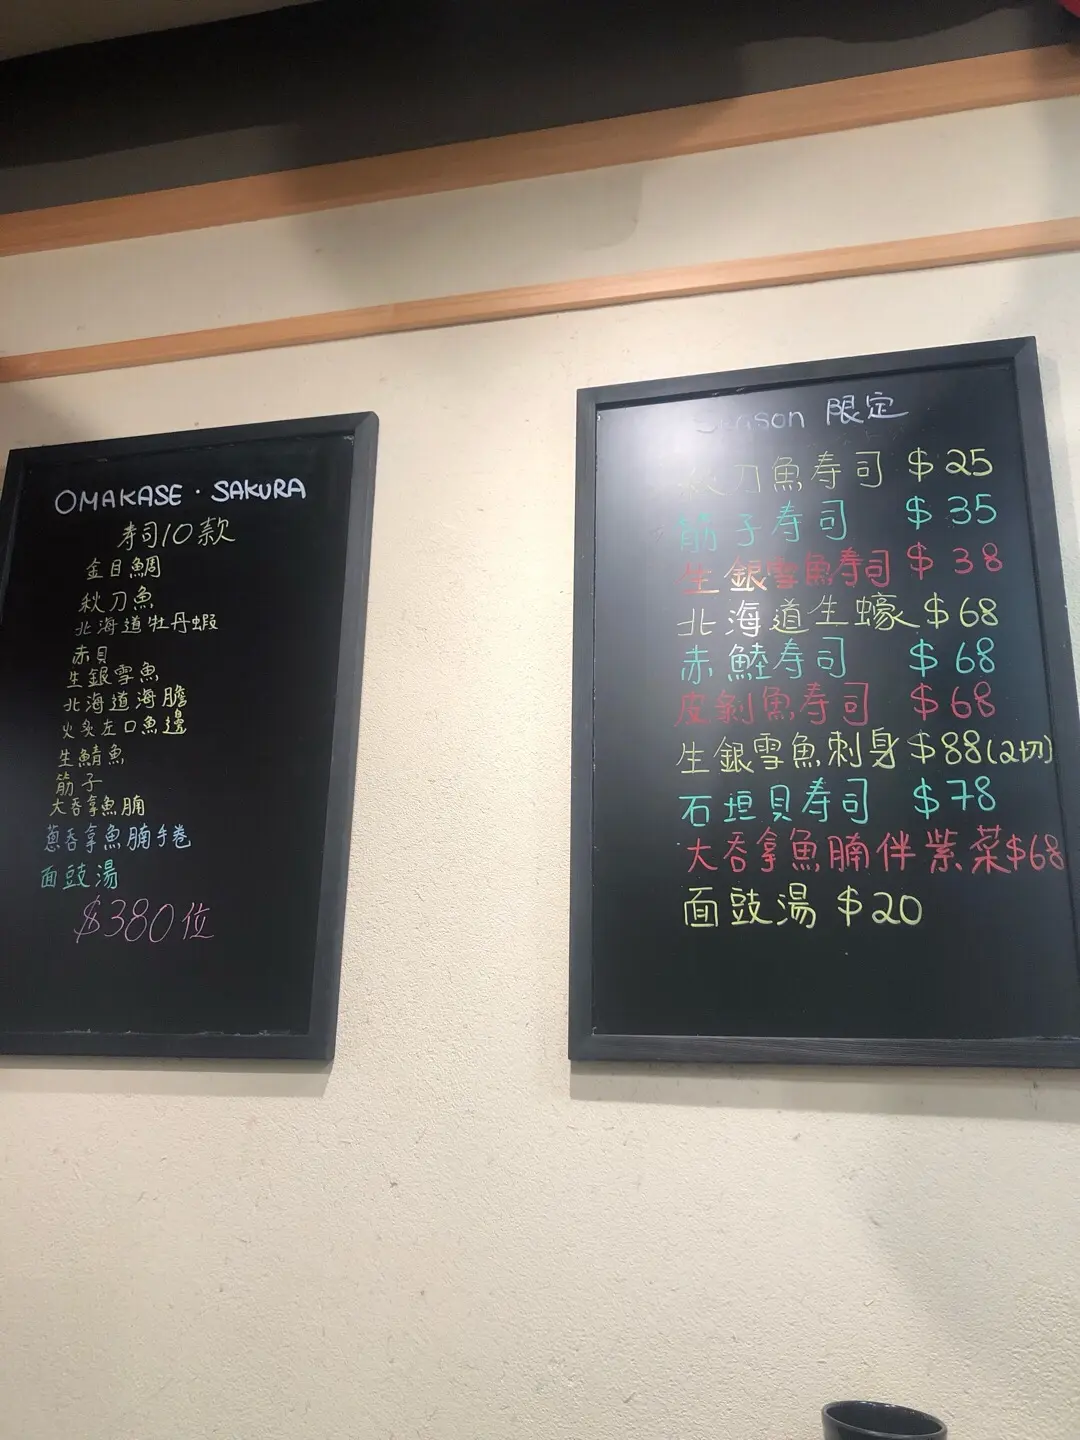 OMAKASE · SAKURA
寿司10款
金目鯛
秋刀魚
北海道牡丹蝦
赤貝
生銀雪魚
北海道海膽
火炙左口魚邊
生鯖魚
筋子
大吞拿魚腩
蔥吞拿魚腩手卷
面豉湯
$380位
Season 限定
秋刀魚寿司 $25
筋子寿司 $35
生銀雪魚寿司 $38
北海道生蠔 $68
赤鯥寿司 $68
皮剝魚寿司 $68
生銀雪魚刺身 $88(2切)
石垣貝寿司 $78
大吞拿魚腩伴紫菜 $68
面豉湯 $20